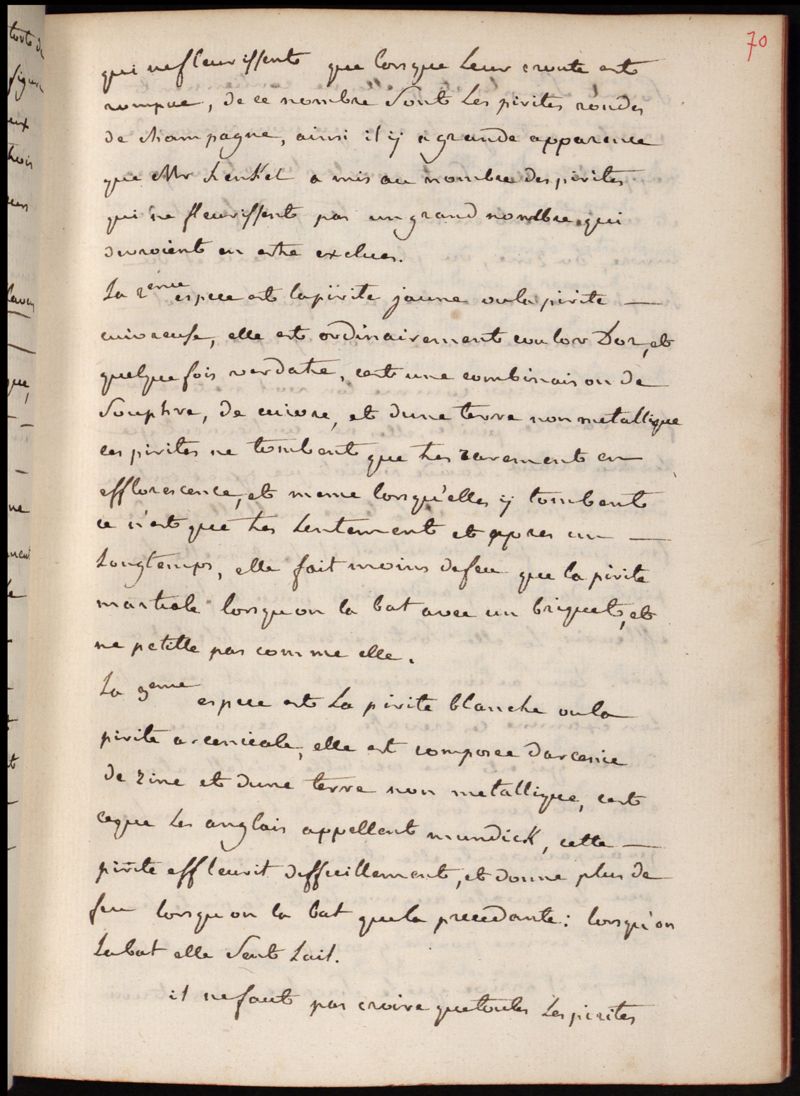 70
qui nefleurissent que lorsque Leur croute est
rompue, de ce nombre sont Les pirites rondes
de champagne, ainsi il ÿ a grande apparence
que Mr henKel a mis au nombre des pirites
qui ne fleurissent pas un grand nombre qui
devroient en estre exclues.
La 2eme espece est la pirite jaune ou la pirite —
cuivreuse, elle est ordinairement coulor Dor, et
quelque fois verdatre, cest une combinaison de
Souphre, de cuivre, et dune terre non metallique
ces pirites ne tombent que tres rarement en
efflorescence, et meme lorsqu'elles ÿ tombent
ce n'est que tres Lentement et apres un —
Longtemps, elle fait moins defeu que la pirite
martiale lorsquon la bat avec un briquet, et
ne petille pas comme elle.
La 3eme espece est La pirite blanche ou la
pirite arcenicale, elle est composee darcenic
de zinc et dune terre non metallique, cest
ceque Les anglais appellent mundicK, cette —
pirite effleurit difficillement, et donne plus de
feu lorsquon la bat que la precedante: lorsqu'on
Labat elle sent Lail.
il nefaut pas croire quetoutes Les pirites